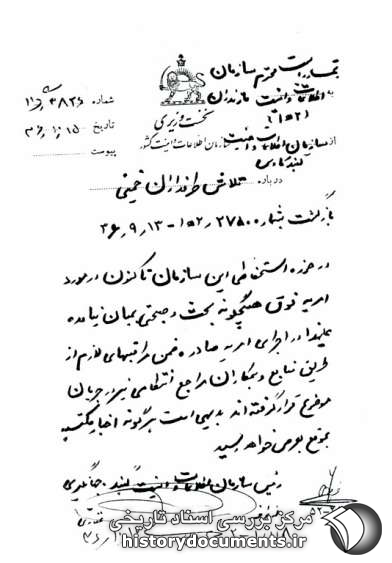 ریاست محترم سازمان
به اطلاعات و امنیت مازندران
(۲ﻫ۱)
شماره
نخست وزیری
تاریخ ۱۵
از سازمان اطلاعات و امنیت
سازمان اطلاعات و امنیت کشور
پیوست
درباره تلاش طرفداران خمینی
بازگشت بشماره ۳۶٫۹٫۱۳
در حوزه استحفاظی این سازمان تاکنون در مورد
امریه فوق هیچگونه بحث و صحبتی بمیان نیامده
علیهذا در اجرای امریه صادره ضمن مراقبتهای لازم از
طریق منابع و همکاران مراجع انتظامی نیز در جریان
موضوع قرار گرفته اند بدیهی است هرگونه اخبار مکتسبه
بموقع بعرض خواهد رسید
رئیس سازمان اطلاعات و امنیت گنبد
مرکز بررسی اسناد تاریخی
historydocuments.ir